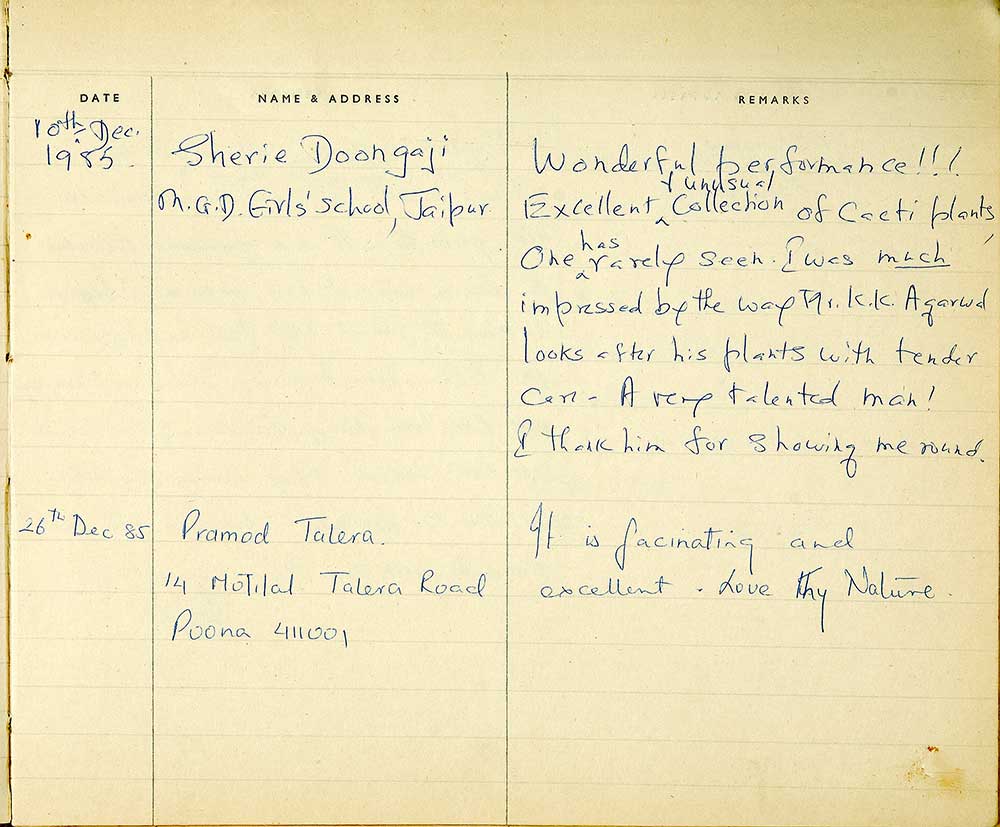 DATE NAME & ADDRESS REMARKS
10th Dec.
1985.
Sherie Doongaji
M.G.D. Girls' School, Jaipur
Wonderful performance!!!
& unusual
Excellent ^ Collection of Cacti plants,
has
One ^ rarely seen. I was much
impressed by the way Mr. K.K. Agarwal
looks after his plants with tender
care - A very talented man!
I thank him for showing me round.
26th Dec 85
Pramod Talera.
14 Motilal Talera Road
Poona 411001
It is facinating and
excellent. Love thy Nature.